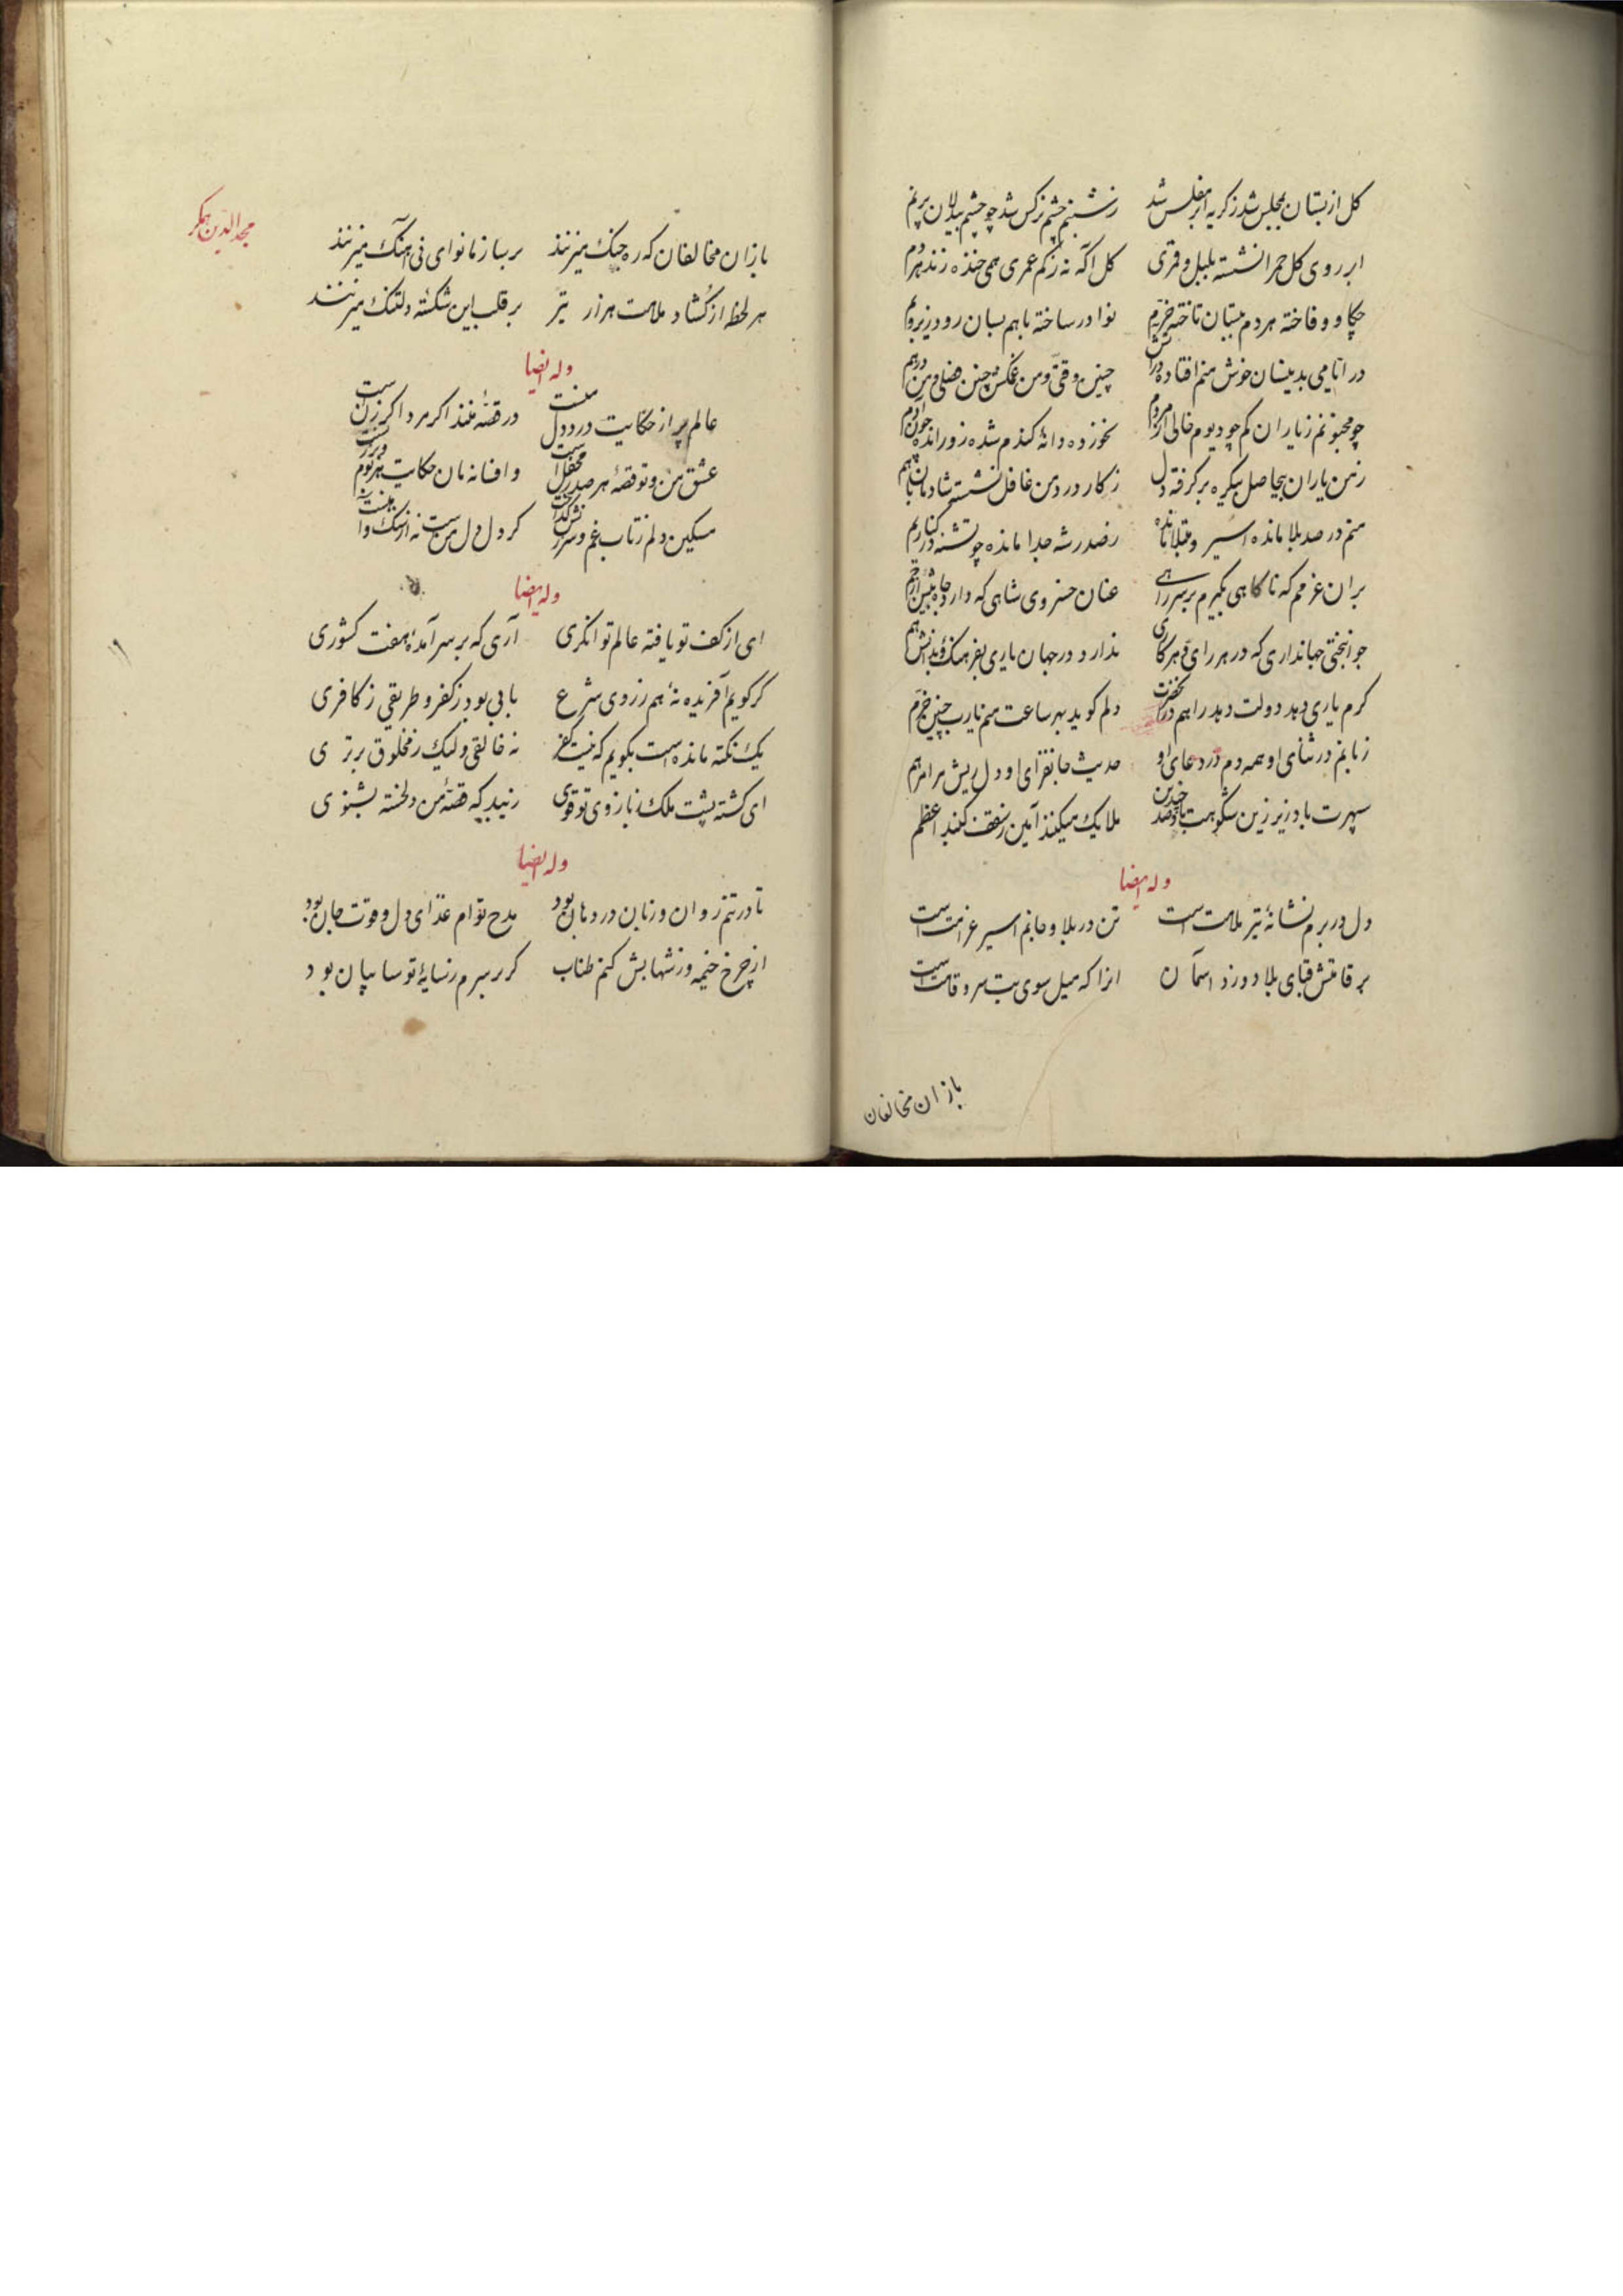 کل از بستان بمجلس شد ز کریه ابر مفلس شد ز شبنم چشم نرکس شد چو چشم بیدلان پر نم
ابر روی کل حمرا نشسته بلبل و قمری کل آکه نه ز کم عمری همی خنده زند هر دم
چکاو و فاخته هر دم ببستان تاخته خرم نوا در ساخته باهم بسان رود زیر و بم
در ایامی بدینسان خوش منم افتاده در آتش چنین وقتی و من غمکن چنین فصلی و من درهم
چو مجنونم ز یاران کم چو دیوم خالی از مردم نخورده دانهٔ کندم شده زو رانده چون آدم
ز من یاران بیحاصل بیکره بر کرفته دل ز کار درد من غافل نشسته شادمان باهم
منم در صد بلا مانده اسیر و مبتلا مانده ز صدر شه جدا مانده چو تشنه در کنار یم
بر ان عزمم که ناکاهی بکیرم بر سر راهی عنان خسروی شاهی که دارد جاه بیش از جم
جوانبختی جهانداری که در هر رای و هر کاری ندارد در جهان یاری بفرهنک و بدانش هم
کرم یاری دهد دولت دهد راهم در آن حضرت دلم کوید بهر ساعت منم یارب چنین خرم
زبانم در ثنای او همه دم در دعای او حدیث جانفزای او دل ریش مرا مرهم
سپهرت باد زیر زین شکوهت باد صد چندین ملایک میکنند آمین ز سقف کنبد اعظم
وله ایضا
دل در برم نشانهٔ تیر ملامت است تن در بلا و جانم اسیر غرامت است
بر قامتش قبای بلا دوزد آسمان انرا که میل سوی بت سرو قامت است
باز ان مخالفان
مجد الدین همکر
باز ان مخالفان که ره جنک میزنند بر ساز ما نوای نی آهنک میزنند
هر لحظه از کشاد ملامت هزار تیر بر قلب این شکستهٔ دلتنک میزنند
وله ایضا
عالم پر از حکایت درد دل منست در قصهٔ منند اکر مرد اکر زنست
عشق من و تو قصهٔ هر صدر محفل است و افسانه مان حکایت هر بوم و برزنست
مسکین دلم ز تاب غم و سرزنش کداخت کر دل دل منست نه از سنک و آهنست
وله ایضا
ای از کف تو یافته عالم توانکری آری که بر سر آمدهٔ هفت کشوری
کر کویم آفریده نهٔ هم ز روی شرع بابی بود ز کفر و طریقی ز کافری
یک نکته مانده است بکویم که نیست کفر نه خالقی ولیک ز مخلوق برتری
ای کشته پشت ملک ز بازوی تو قوی زیبد که قصهٔ من دلخسته بشنوی
وله ایضا
تا در تنم روان و زبان در دهان بود مدح توام غذای دل و قوت جان بود
از چرخ خیمه وز شهابش کنم طناب کر بر سرم ز سایهٔ تو سایبان بود